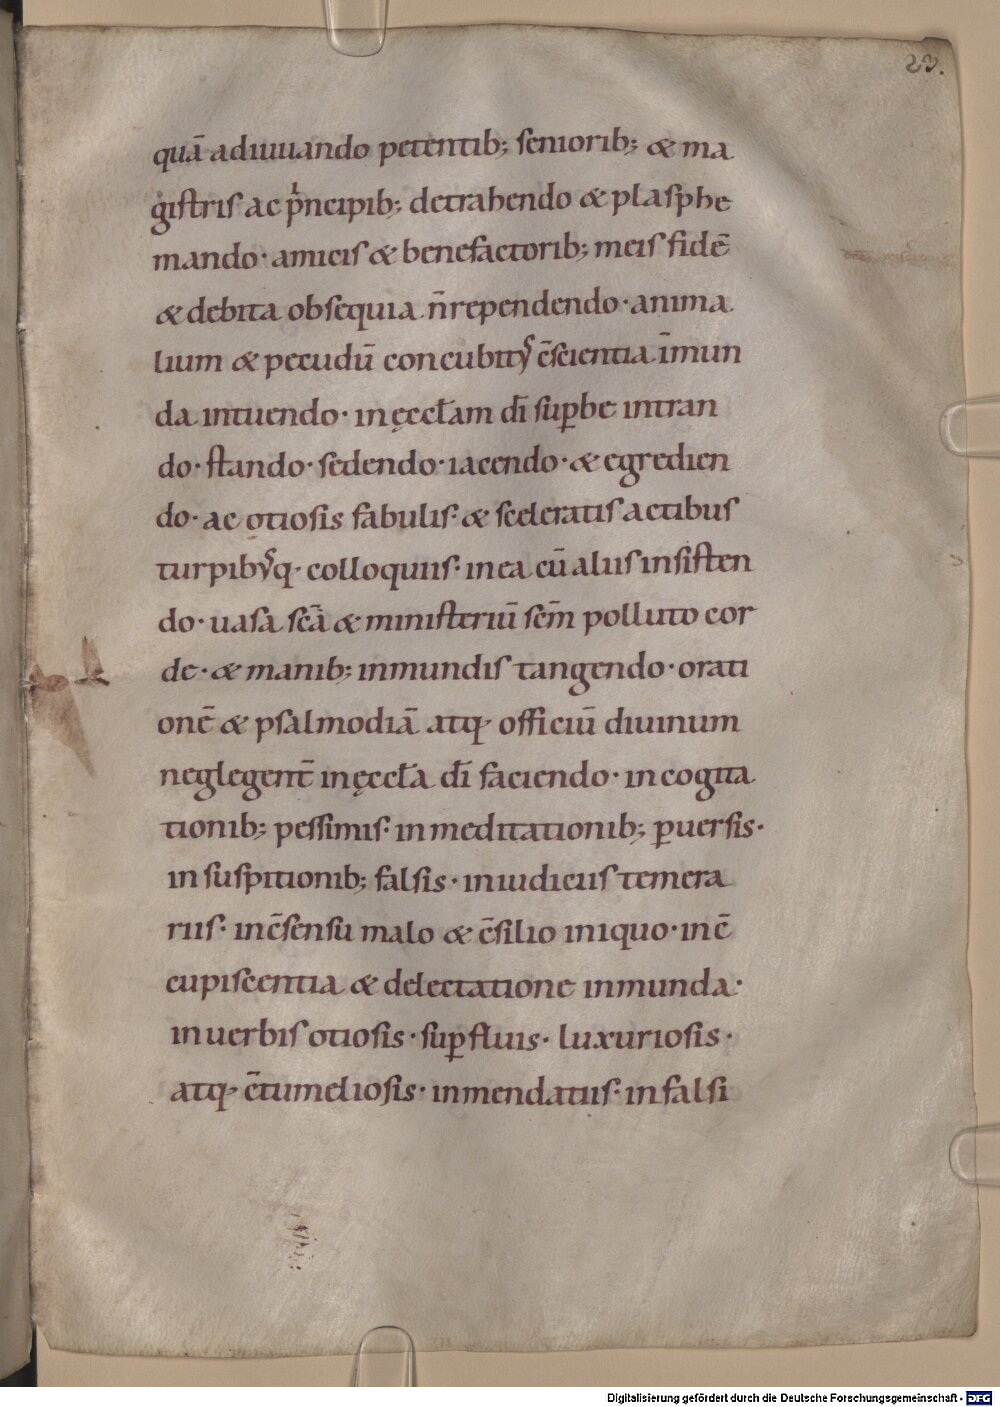 23.
quā adiuuando petentib; seniorib; & ma
gistris ac p̍ncipib; detrahendo & plasphe
mando· amicis & benefactorib; meis fidē
& debita obsequia n̄ rependendo· anima
lium & pecudū concubitꝰ c̄scientia īmun
da intuendo· in ęccłam dī suꝑbe intran
do· stando· sedendo· iacendo· & egredien
do· ac otiosis fabulis· & sceleratis actibus
turpibꝰq· colloquiis· in ea cū aliis insisten
do· uasa scā & ministeriū scm̄ polluto cor
de· & manib; inmundis tangendo· orati
onē & psalmodiā atq· officiū diuinum
neglegent̄ in ęccła dī faciendo· in cogita
tionib; pessimis· in meditationib; ꝑuersis·
in suspitionib; falsis· in iudiciis temera
riis· in c̄sensu malo & c̄silio iniquo· in c̄
cupiscentia & delectatione inmunda·
in uerbis otiosis· suꝑfluis· luxuriosis·
atq· c̄tumeliosis· in mendatiis· in falsi
Digitalisierung gefördert durch die Deutsche Forschungsgemeinschaft - DFG